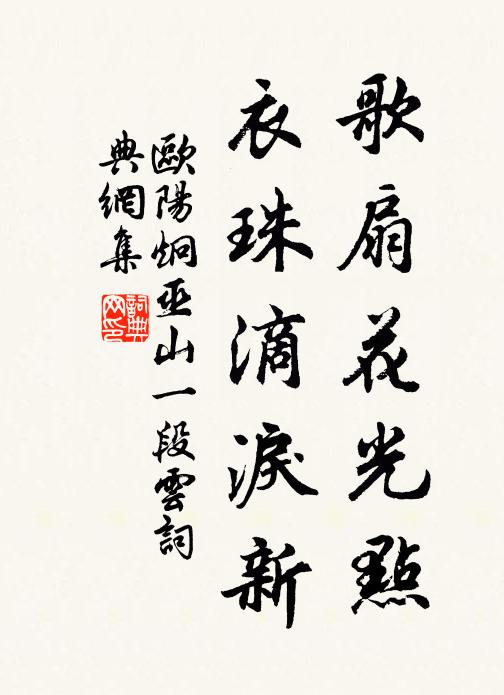 歌扇花光點
衣珠滴淚新
歐陽炯巫山一段雲詞
典網集
詞典網印